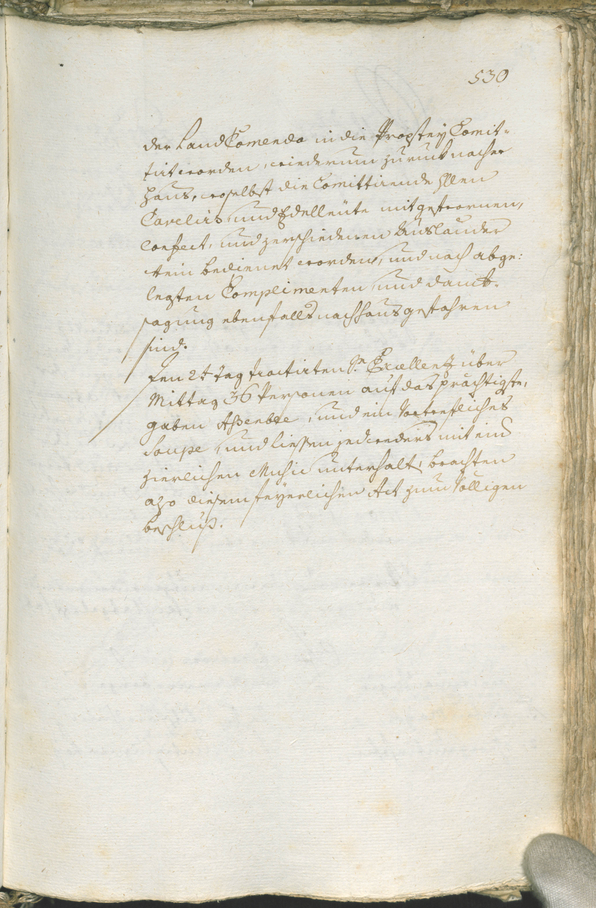 530
der LandComenda in die Propstey Comit-
tirt worden, wiederum zuruck nacher
Hauß, woselbst die Comittirende Herren
Caveliers, und Edelleute mit gefrornen,
Confect, und verschiedenen Auslander
wein bedienet worden, und nach abge:
legten Complimenten, und danck-
sagung ebenfalls nach haus gefahren
sind.
den 2t Tag tractirten Sr Excellenz über
Mittag 36 Personen auf das prächtigste,
gaben Assemblée, und ein Vortreffliches
Soupe, und liessen jederzeit mit einer
zierlichen Music unterhalten, brachten
also diesem feyerlichen Act zum völligen
beschluß.